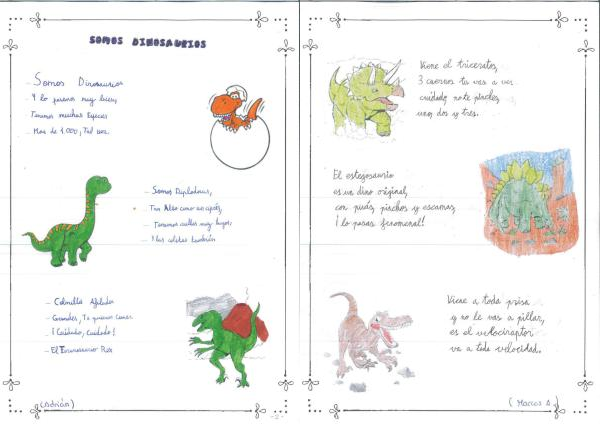 SOMOS DINOSAURIOS
Somos Dinosaurios
Y lo pasamos muy bien,
Tenemos muchas Especies
Mas de 1.000, Tal vez.
- Somos Diplodocus,
- Tan Altos como un
- Tenemos cuellos muy largos,
- Y las coletas también
- Colmillos Afilados
- Grandes, Te quieren comer
- ¡Cuidado, Cuidado!
- El Tiranosaurio Rex
(Adrián)
-2-
Viene el triceratos,
3 cuernos te vas a ver
cuidado no te pinches,
uno, dos y tres.
El estegosaurio
es un dino original,
con puás, pinchos y escamas,
¡lo pasas fenomenal!
Viene a toda prisa
y no le vas a pillar,
es el velociraptor
va a toda velocidad.
(Marcos A.)